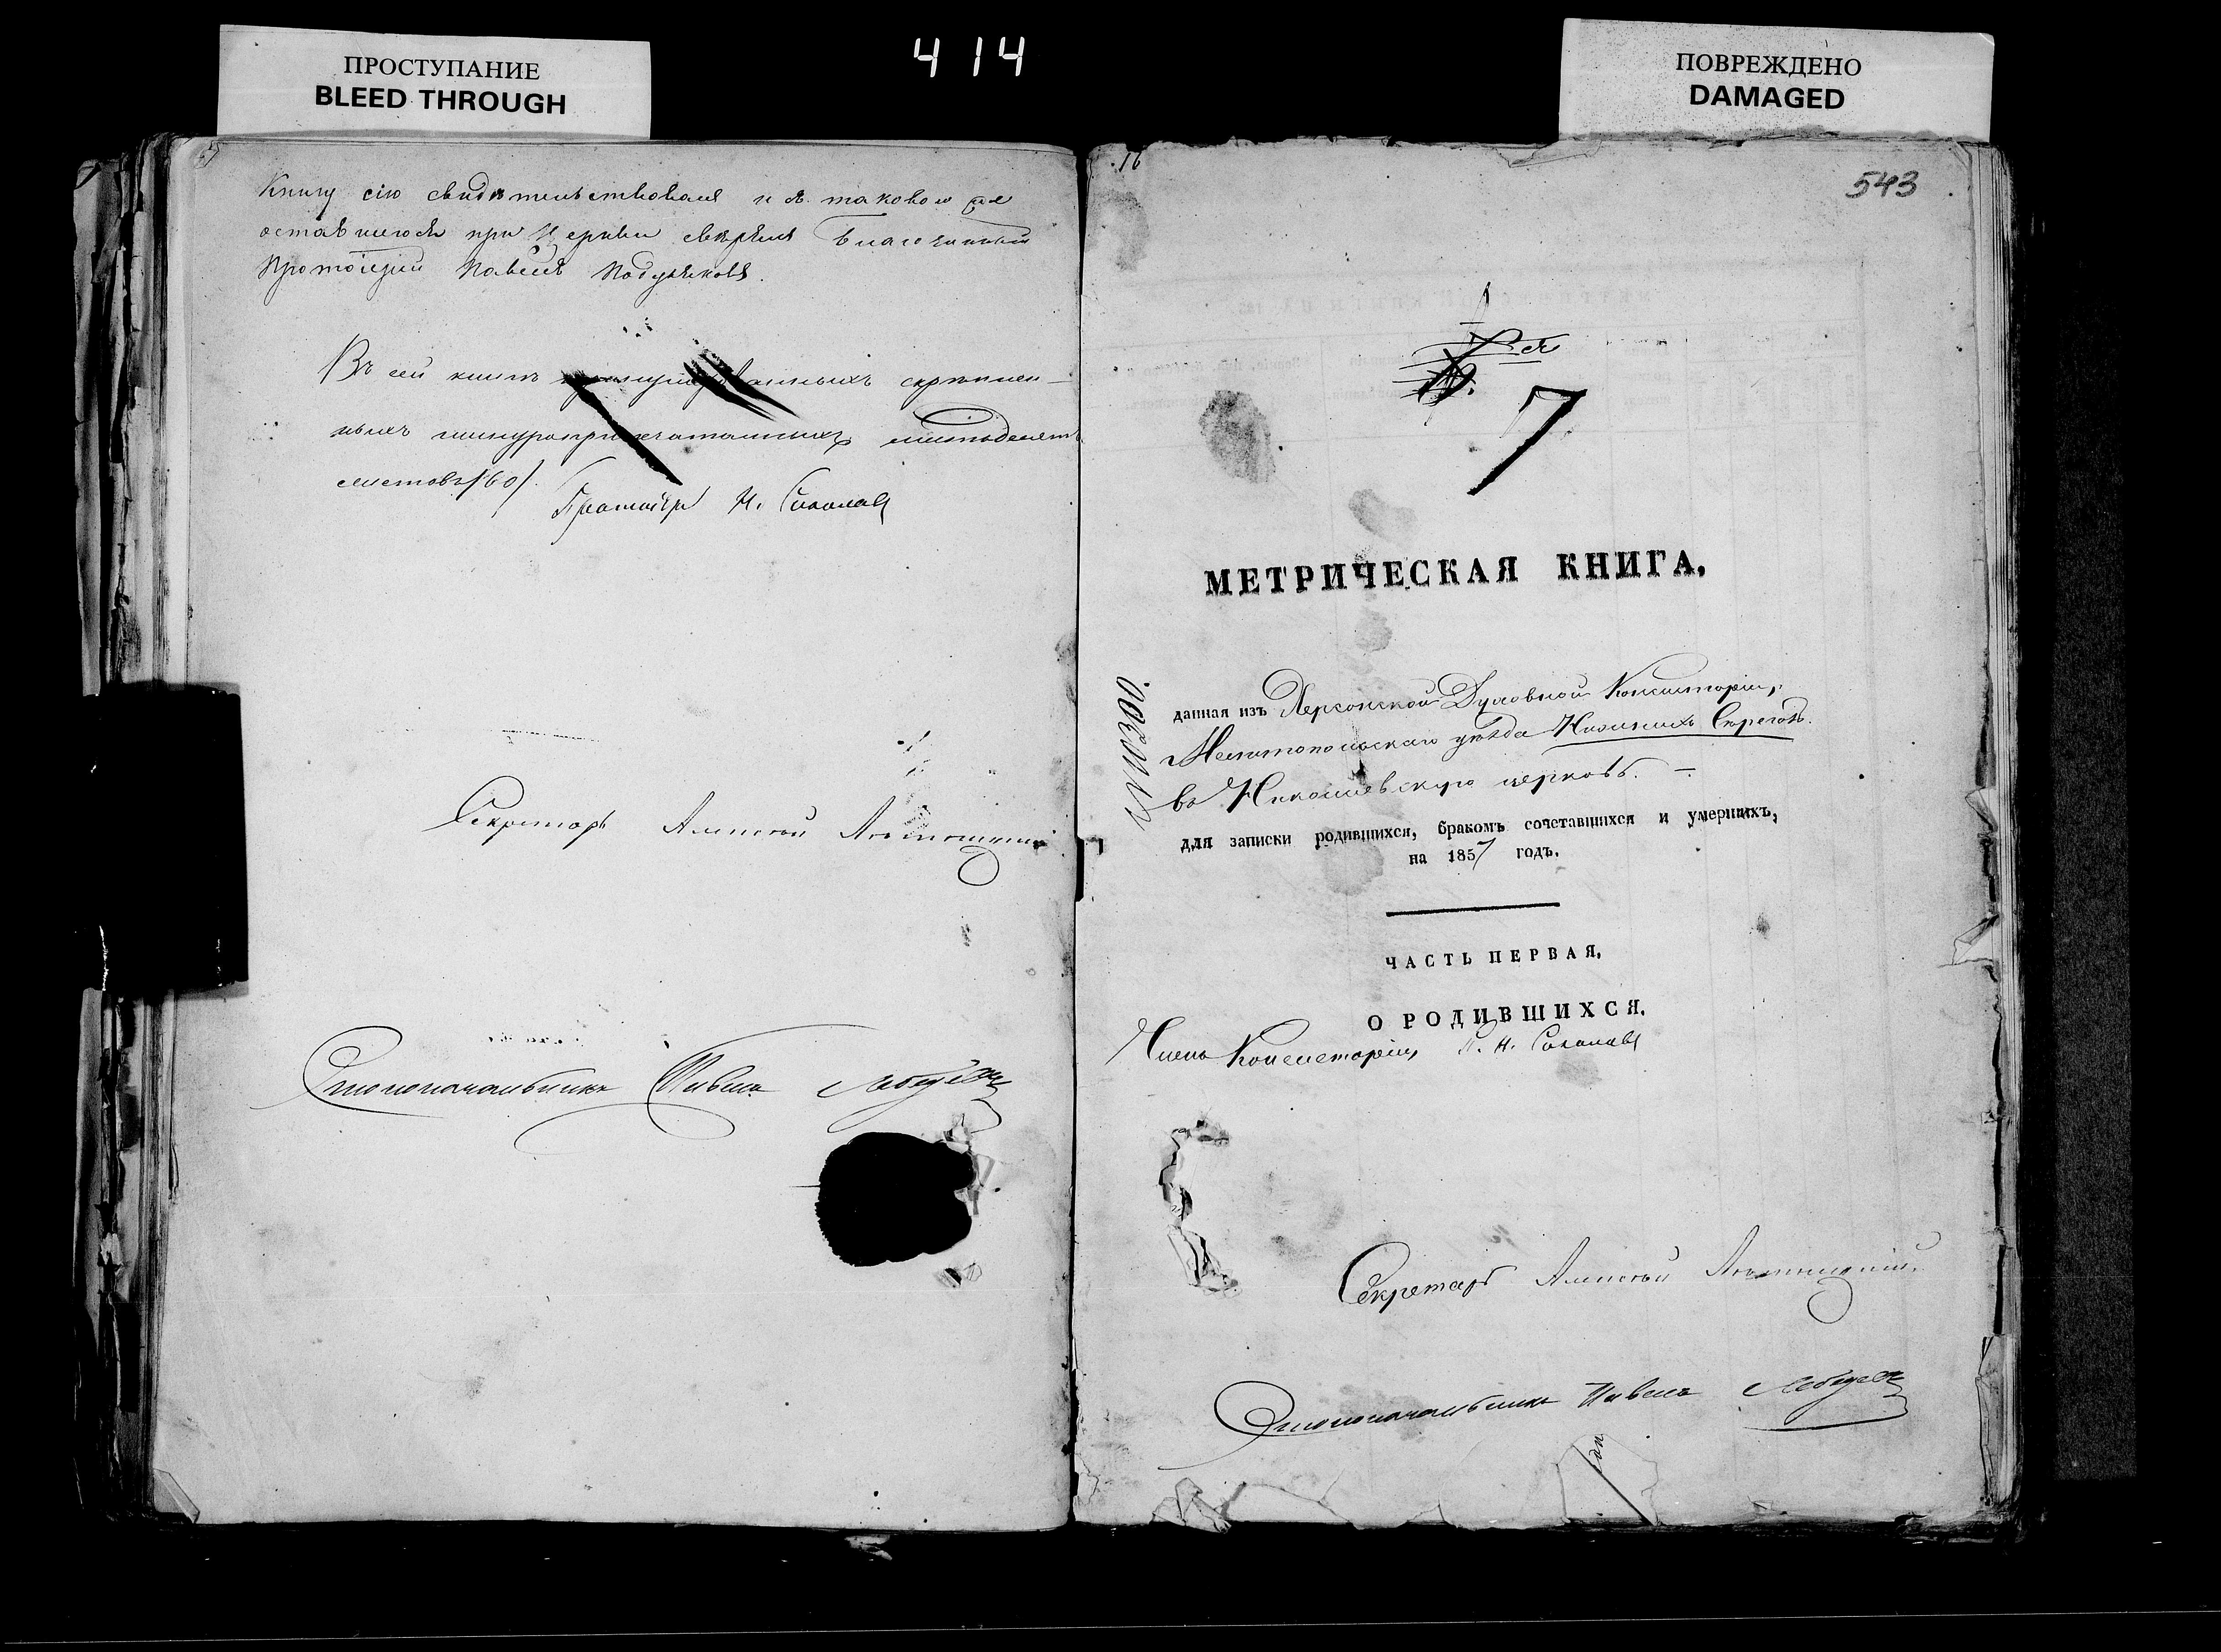 ПРОСТУПАНИЕ
BLEED THROUGH
414
ПОВРЕЖДЕНО
DAMAGED
Книгу сію свидѣтельствовалъ и съ таковою же
оставшеюся при Церкви свѣрялъ Благочинный
Протоіерей Павелъ
Въ сей книгѣ скрѣплен-
ныхъ шнуроприпечатанныхъ шестьдесятъ
листовъ /60/.
Протоіерей И. Соколовъ
Секретарь Алексѣй
Столоначальникъ Павелъ Лебедевъ
16
543
7
МЕТРИЧЕСКАЯ КНИГА,
№ 10300.
данная изъ Херсонской Духовной Консисторіи,
Мелитопольскаго уѣзда Нижнихъ Сѣрогозъ
въ Николаевскую церковь. –
для записки родившихся, бракомъ сочетавшихся и умершихъ,
на 1857 годъ.
ЧАСТЬ ПЕРВАЯ,
О РОДИВШИХСЯ.
Членъ Консисторіи, П. И. Соколовъ
Секретарь Алексѣй
Столоначальникъ Павелъ Лебедевъ